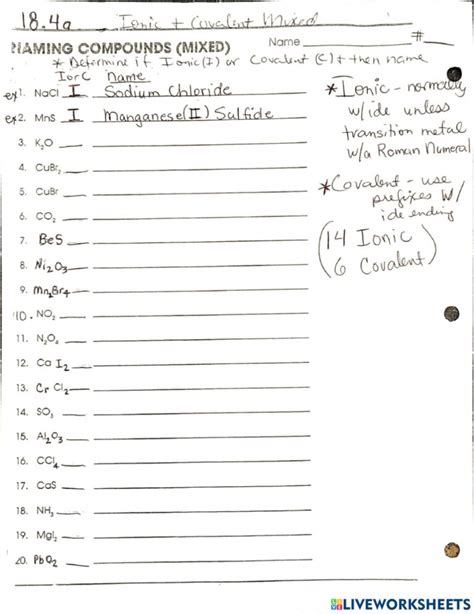 18.4a Ionic + Covalent Mixed
NAMING COMPOUNDS (MIXED) Name #
* Determine if Ionic (I) or Covalent (C) + then name
I or C Name
ex1. NaCl I Sodium Chloride
ex2. MnS I Manganese (II) Sulfide
3. K₂O
4. CuBr₂
5. CuBr
6. CO₂
7. BeS
8. Ni₂O₃
9. Mn₂Br₄
10. NO₂
11. N₂O₄
12. Ca I₂
13. Cr Cl₂
14. SO₃
15. Al₂O₃
16. CCl₄
17. CaS
18. NH₃
19. MgI₂
20. PbO₂
* Ionic - normally
w/ide unless
transition metal
w/a Roman Numeral
* Covalent - use
prefixes w/
ide ending
(14 Ionic
6 Covalent)
LIVEWORKSHEETS